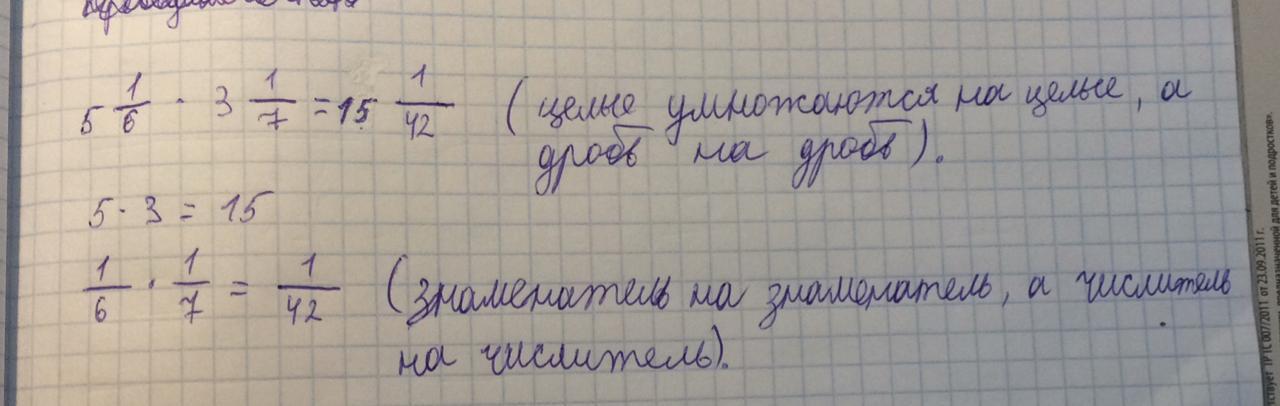 5 1/6 · 3 1/7 = 15 1/42 (целые умножаются на целые, а
дробь на дробь).
5 · 3 = 15
1/6 · 1/7 = 1/42 (знаменатель на знаменатель, а числитель
на числитель).
ТР ТС 007/2011 от 23.09.2011 г.
для детей и подростков».